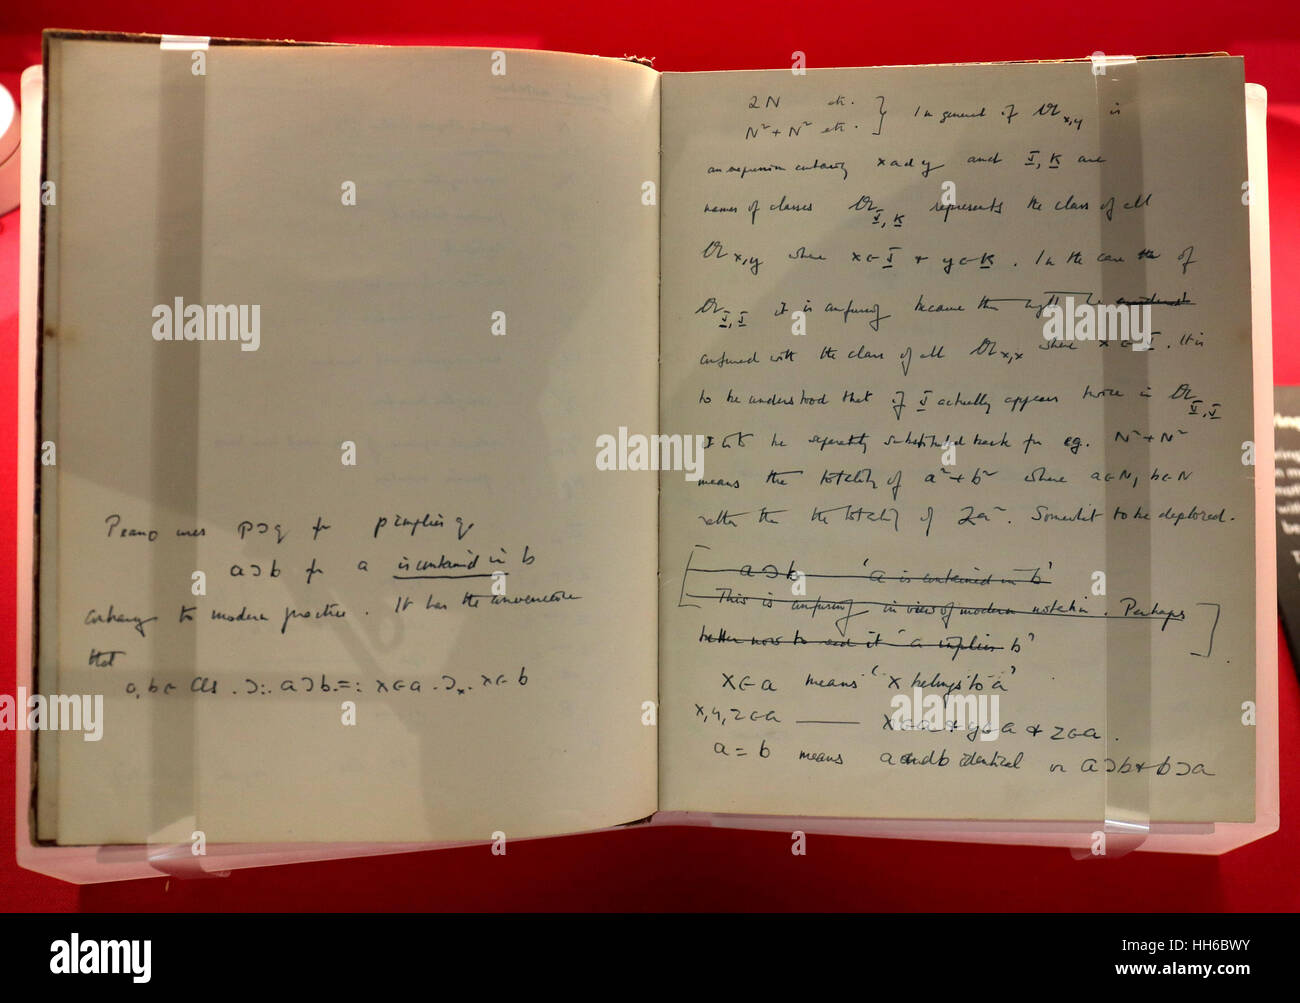 Peano uses p⊃q for p implies q
a⊃b for a is contained in b
contrary to modern practice. It has the convenience
that
a, b ϵ Cls .⊃:. a⊃b .=: x ϵ a .⊃ₓ. x ϵ b
2N etc.
N² + N² etc. } In general if 𝔄x,y is
an expression containing x and y and I, K are
names of classes 𝔄I,K represents the class of all
𝔄x,y where x ϵ I + y ϵ K. In the case of
𝔄I,I it is confusing because this might be
confused with the class of all 𝔄x,x where x ϵ I. It is
to be understood that if I actually appears twice in 𝔄I,I
I is to be separately substituted each for eg. N² + N²
means the totality of a² + b² where a ϵ N, b ϵ N
rather than the totality of 2a². Somewhat to be deplored.
a⊃b 'a is contained in b'
This is confusing in view of modern notation. Perhaps
better now to read it 'a implies b'
x ϵ a means 'x belongs to a'
x, y, z ϵ a —— x ϵ a + y ϵ a + z ϵ a.
a = b means a and b identical or a⊃b + b⊃a
alamy
alamy
Image ID: HH6BWY
www.alamy.com